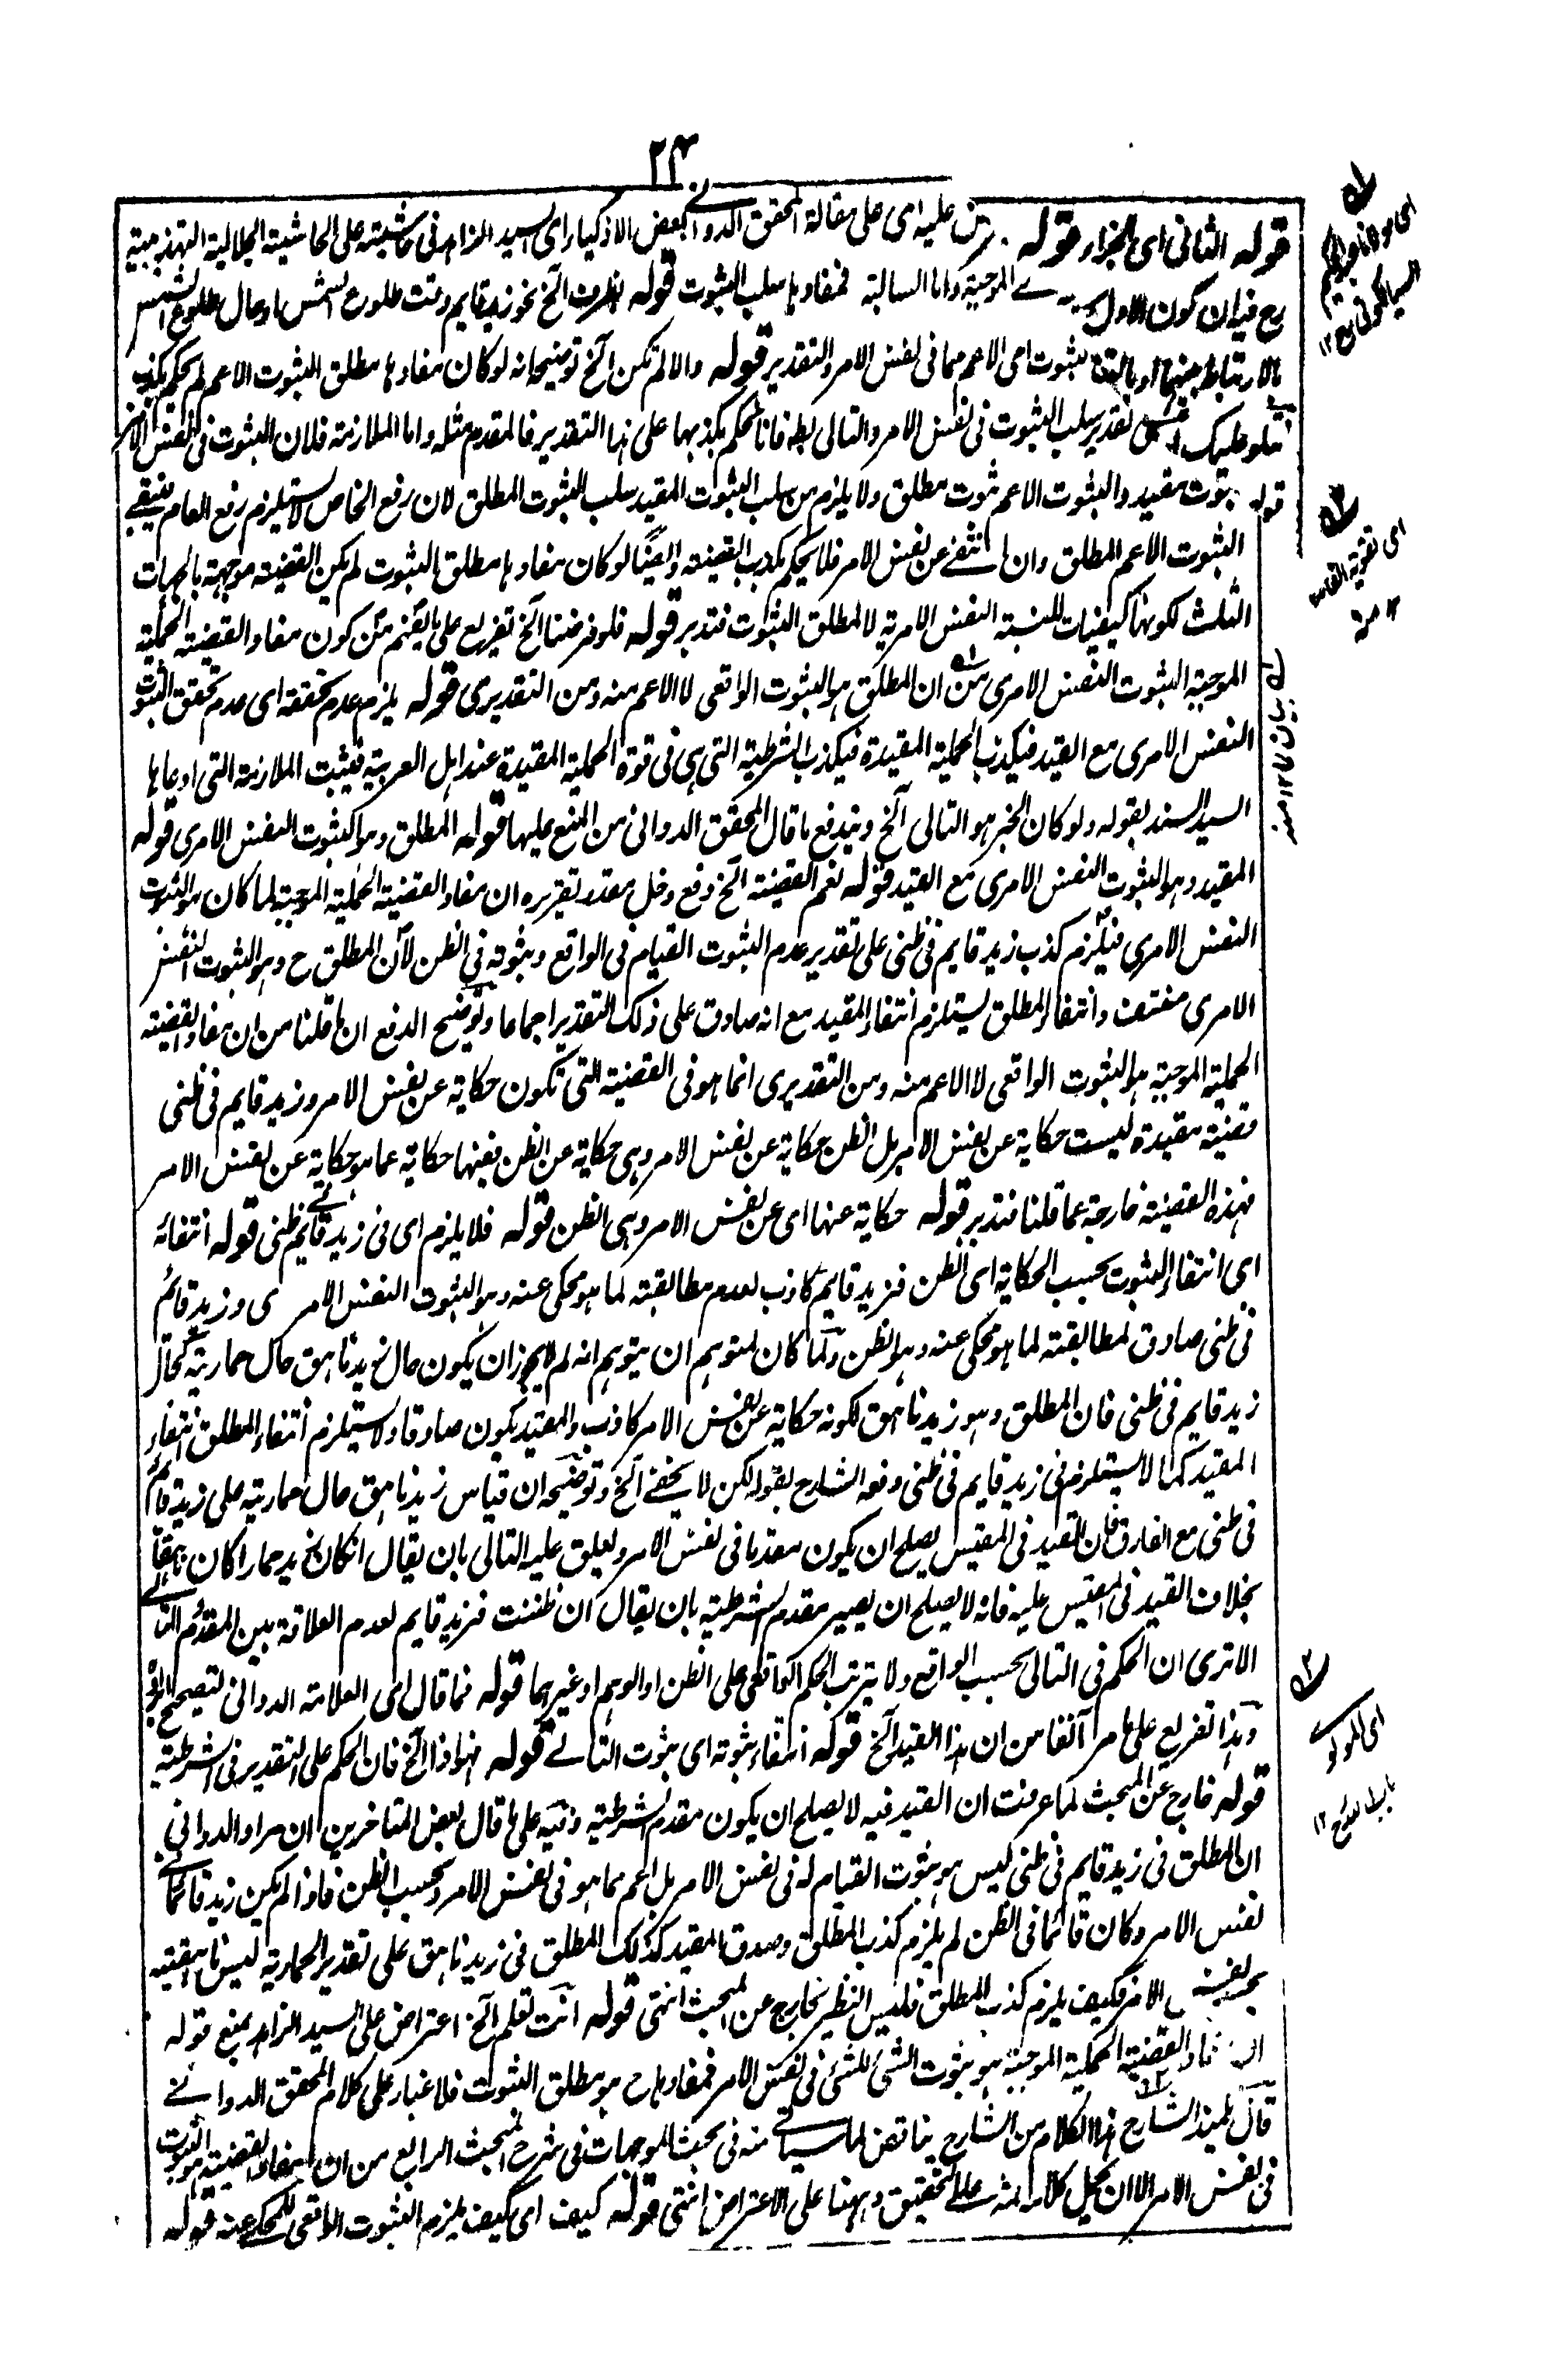 ٢٣
قوله الثانى اى الجزاء قوله عليه اى على مقالة المحقق الدوانے بعض الاذكياء اى السيد الزاهد فى حاشيته على الحاشية الجلالية التهذيبية
رح فيه ان كون الاول الموجبة واما السالبة فمفادها سلب الثبوت قوله لظرف آلخ نحو زيد قايم وقت طلوع الشمس او حال طلوع الشمس
بالارتباط بينهما او بالثبوت اى الاعم مما فى نفس الامر والتقدير قوله والا لم تكن آلخ توضيحه انه لو كان مفادها مطلق الثبوت الاعم لم يحكم بكذب
تقدير سلب الثبوت فى نفس الامر والتالى بط فانا نحكم بكذبها على هذا التقدير فالمقدم مثله واما الملازمة فلان الثبوت فى نفس الامر
ثبوت مقيد والثبوت الاعم ثبوت مطلق ولا يلزم من سلب الثبوت المقيد سلب الثبوت المطلق لان رفع الخاص لا يستلزم رفع العام فيبقے
الثبوت الاعم المطلق وان انتفے عن نفس الامر فلا يحكم بكذب القضية وايضًا لو كان مفادها مطلق الثبوت لم يكن القضية موجهة بالجهات
الثلث لكونها كيفيات للنسبة النفس الامرية لا لمطلق الثبوت فتدبر قوله فلو فرضنا آلخ تفريع على ما يفهم من كون مفاد القضية الحملية
الموجبة الثبوت النفس الامرى من ان المطلق هو الثبوت الواقعى لا الاعم منه ومن التقديرى قوله يلزم عدم تحققه اى عدم تحقق الثبوت
النفس الامرى مع القيد فيكذب الحملية المقيدة فيكذب الشرطية التى هى فى قوة الحملية المقيدة عند اهل العربية فيثبت الملازمة التى ادعاها
السيد السند بقوله ولو كان الخبر هو التالى آلخ ويندفع ما قال المحقق الدوانى من المنع عليها قوله المطلق وهو الثبوت النفس الامرى قوله
المقيد وهو الثبوت النفس الامرى مع القيد قوله نعم القضية آلخ دفع دخل مقدر تقريره ان مفاد القضية الحملية الموجبة لما كان هو الثبوت
النفس الامرى فيلزم كذب زيد قايم فى ظنى على تقدير عدم الثبوت القيام فى الواقع وثبوته فى الظن لان المطلق ح وهو الثبوت النفس
الامرى منتف وانتفاء المطلق يستلزم انتفاء المقيد مع انه صادق على ذلك التقدير اجماعا وتوضيح الدفع ان ما قلنا من ان مفاد القضية
الحملية الموجبة هو الثبوت الواقعى لا الاعم منه ومن التقديرى انما هو فى القضية التى تكون حكاية عن نفس الامر وزيد قايم فى ظنى
قضية مقيدة ليست حكاية عن نفس الامر بل الظن حكاية عن نفس الامر وهى حكاية عن الظن فعينها حكاية عما هو حكاية عن نفس الامر
فهذه القضية خارجة عما قلنا فتدبر قوله حكاية عنها اى عن نفس الامر وهى الظن قوله فلا يلزم اى فى زيد قايم فے ظنى قوله انتفائه
اى انتفاء الثبوت بحسب الحكاية اى الظن فزيد قايم كاذب لعدم مطابقته لما هو محكى عنه وهو الثبوت النفس الامرى وزيد قائم
فى ظنى صادق لمطابقته لما هو محكى عنه وهو الظن ولما كان لمتوهم ان يتوهم انه لم لا يجوز ان يكون حال زيد ناهق حال حماريته كحال
زيد قايم فى ظنى فان المطلق وهو زيد ناهق لكونه حكاية عن نفس الامر كاذب والمقيد يكون صادقا ولا يستلزم انتفاء المطلق انتفاء
المقيد كما لا يستلزم فى زيد قايم فى ظنى دفعه الشارح بقوله لكن لا يخفے آلخ وتوضيحه ان قياس زيد ناهق حال حماريته على زيد قايم
فى ظنى مع الفارق فان القيد فى المقيس يصلح ان يكون مقدما فى نفس الامر ويعلق عليه التالى بان يقال انكان زيد حمارا كان ناهقًا
بخلاف القيد فى المقيس عليه فانه لا يصلح ان يصير مقدم الشرطية بان يقال ان ظننت فزيد قايم لعدم العلاقة بين المقدم والتالے
الا ترى ان الحكم فى التالى بحسب الواقع ولا يترتب الحكم الواقعى على الظن او الوهم او غيرهما قوله فما قال اى العلامة الدوانى لتصحيح
وهذا تفريع على ما مر آنفا من ان هذا القيد آلخ قوله انتفاء ثبوته اى ثبوت التالے قوله فهو اذا آلخ فان الحكم على التقدير فى الشرطية
قوله خارج عن المبحث لما عرفت ان القيد فيه لا يصلح ان يكون مقدم الشرطية ونبه على ما قال بعض المتاخرين ان مراد الدوانى
ان المطلق فى زيد قايم فى ظنى ليس هو ثبوت القيام له فى نفس الامر بل اعم مما هو فى نفس الامر وبحسب الظن فاذا لم يكن زيد قائما فے
نفس الامر وكان قائما فى الظن لم يلزم كذب المطلق وصدق المقيد كذلك المطلق فى زيد ناهق على تقدير الحمارية ليس ناهقيته
بحسب نفس الامر فكيف يلزم كذب المطلق فليس النظير بخارج عن المبحث انتهى قوله انت تعلم آلخ اعتراض على السيد الزاهد بمنع قوله
ان مفاد القضية الحملية الموجبة هو ثبوت الشئ للشئ فى نفس الامر فمفادها ح هو مطلق الثبوت فلا غبار على كلام المحقق الدوانے
قال تلميذ الشارح هذا الكلام من الشارح يناقض لما سياتے منه فى بحث الموجهات فى شرح المبحث الرابع من ان مفاد القضية هو الثبوت
فى نفس الامر الا ان يحمل كلامه ثمه على التحقيق وههنا على الاعتراض انتهى قوله كيف اى كيف يلزم الثبوت الواقعى للمحكى عنه قوله